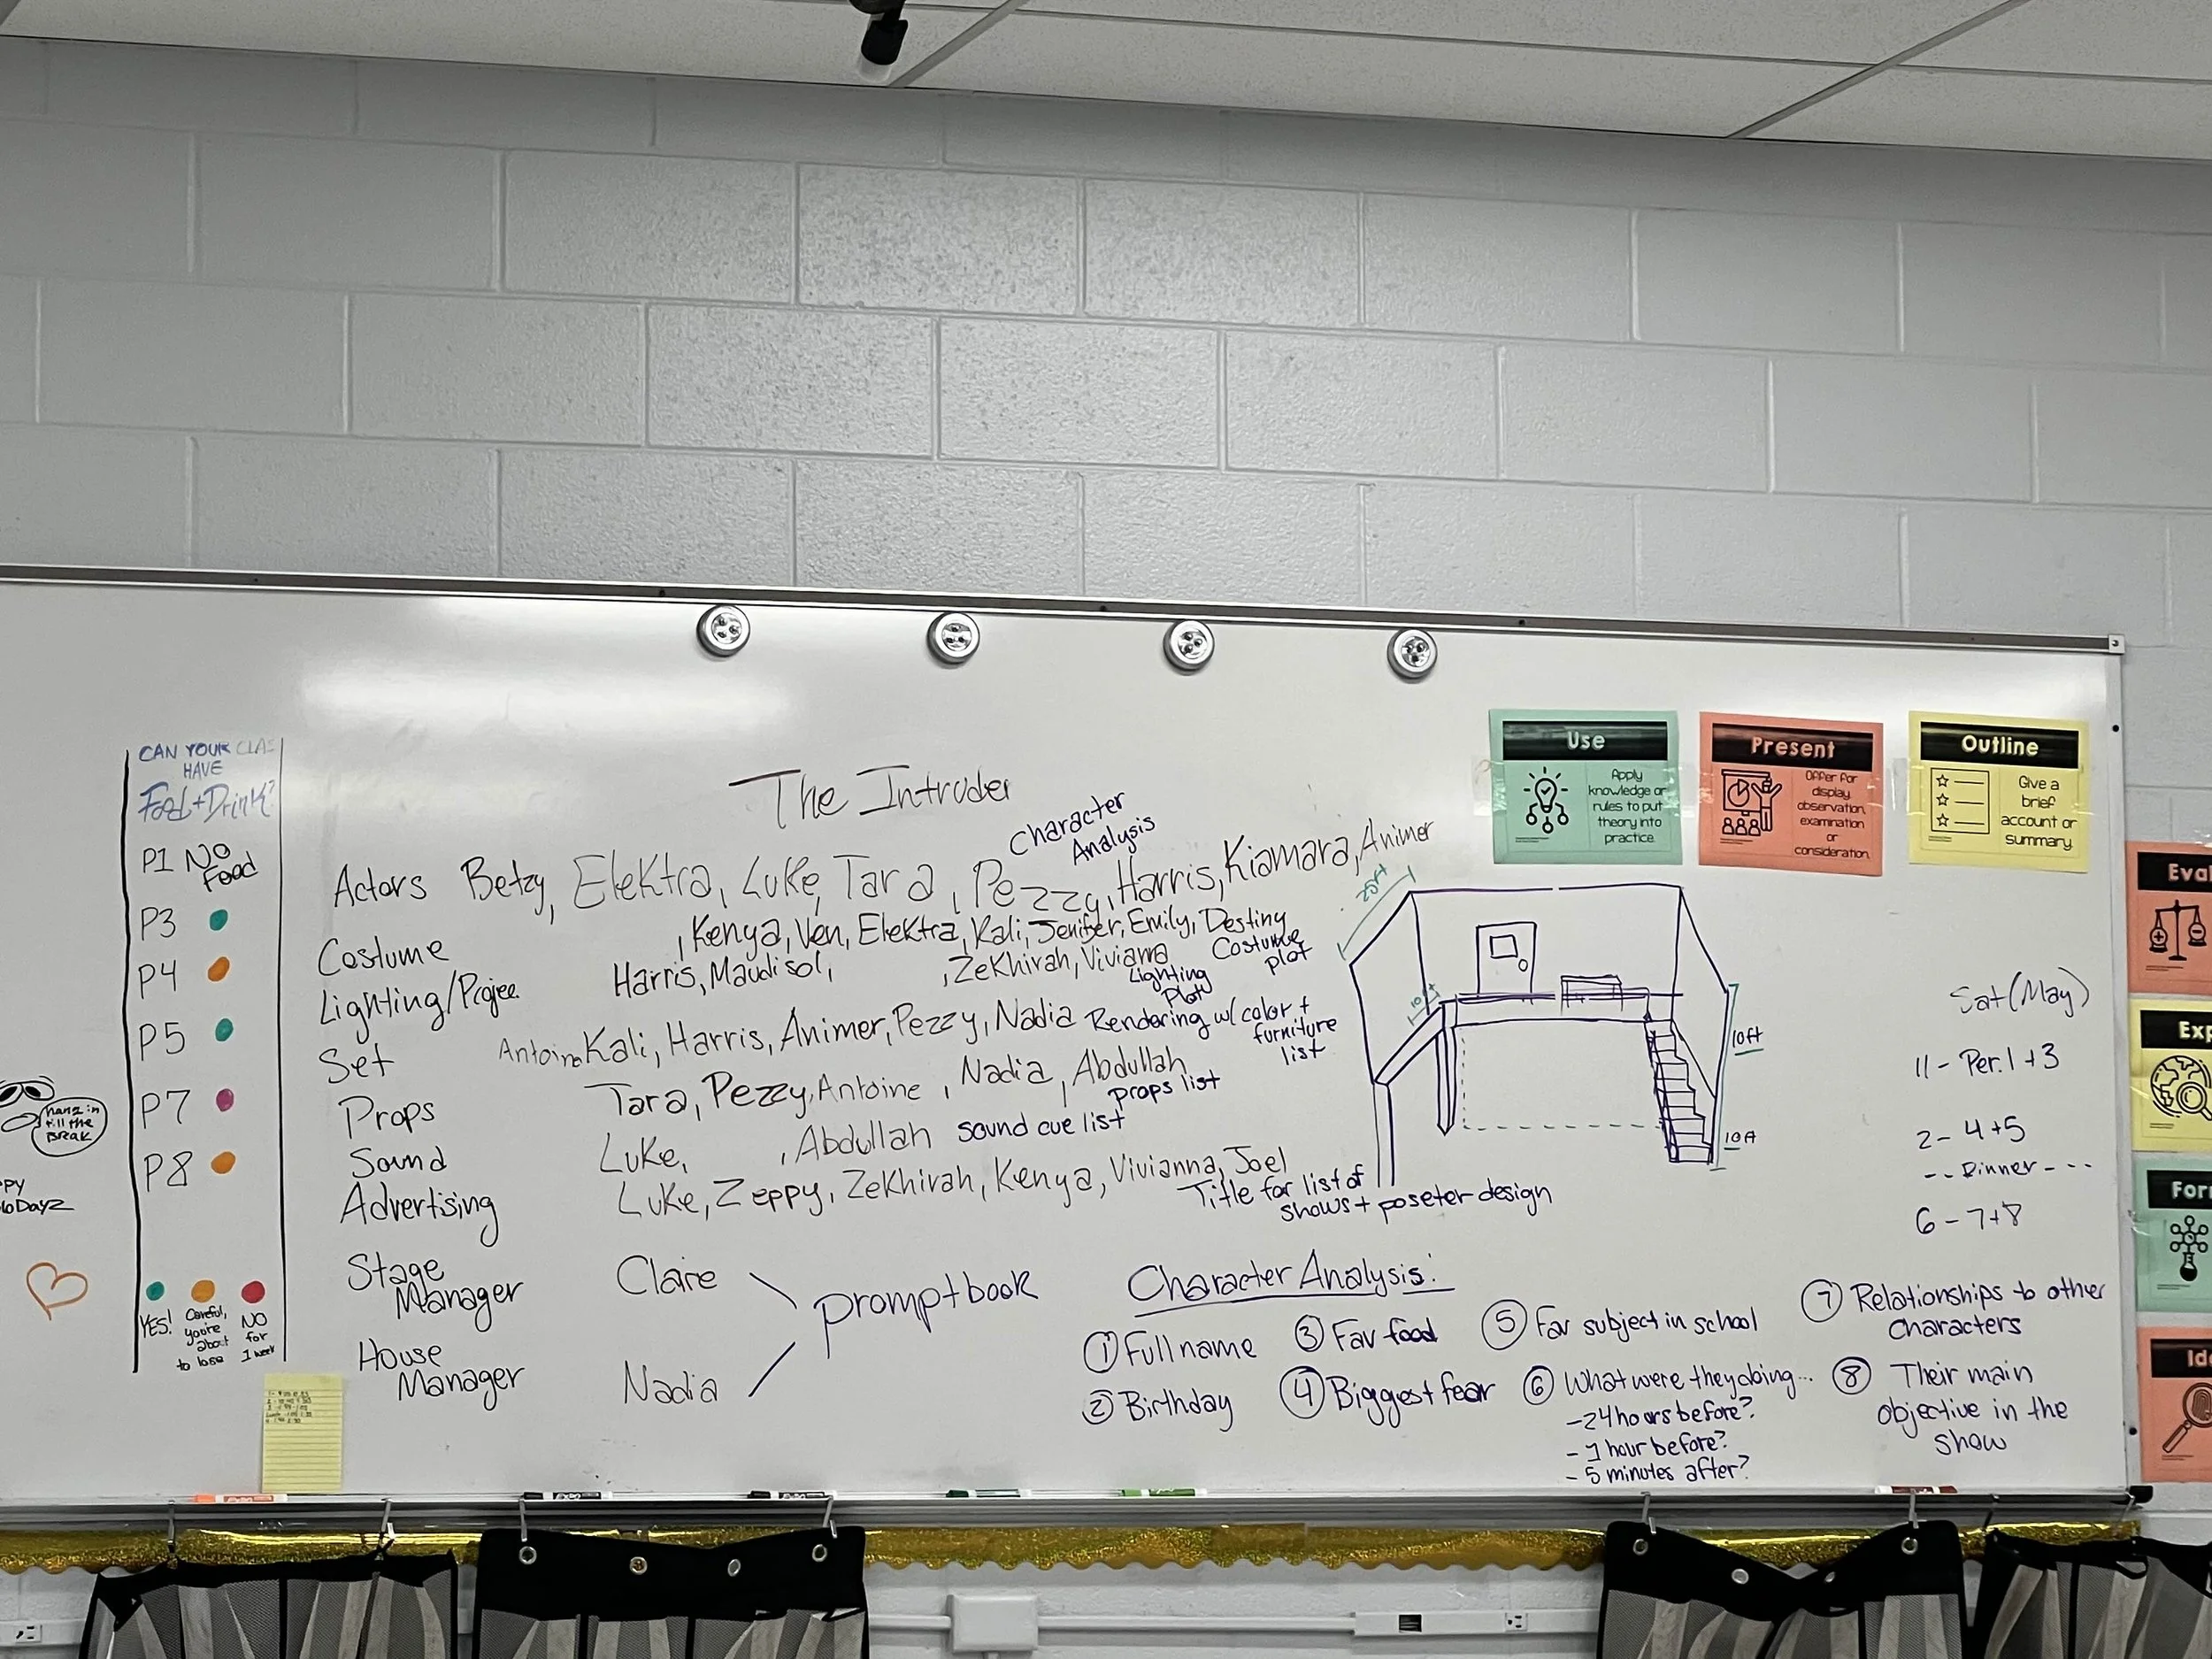 CAN YOUR CLAS
HAVE
Food + Drink?
P1 NO
Food
P3
P4
P5
P7
P8
YES!
Careful,
you're
about
to lose
NO
for
1 week
hang in
till the
BRAK
The Intruder
Character
Analysis
Actors Betzy, Elektra, Luke, Tara, Pezzy, Harris, Kiamara, Animer
Costume , Kenya, Ven, Elektra, Kali, Jenifer, Emily, Destiny
Costume
plot
Lighting/Projec Harris, Maudisol, , Zekhirah, Vivianna
Lighting
Plot
Set Antoine Kali, Harris, Animer, Pezzy, Nadia Rendering w/ color +
furniture
list
Props Tara, Pezzy, Antoine , Nadia, Abdullah
props list
Sound Luke, , Abdullah sound cue list
Advertising Luke, Zeppy, Zekhirah, Kenya, Vivianna, Joel
Title for list of
shows + poseter design
Stage
Manager Claire
promptbook
House
Manager Nadia
25ft
10ft
10ft
10ft
Use
Apply
knowledge or
rules to put
theory into
practice.
Present
Offer for
display,
observation,
examination
or
consideration.
Outline
Give a
brief
account or
summary.
Eval
Exp
For
Ide
Sat (May)
11 - Per. 1 + 3
2 - 4 + 5
-- Dinner ---
6 - 7 + 8
Character Analysis:
① Full name
② Birthday
③ Fav food
④ Biggest fear
⑤ Fav subject in school
⑥ What were they doing...
- 24 hours before?
- 1 hour before?
- 5 minutes after?
⑦ Relationships to other
characters
⑧ Their main
objective in the
show